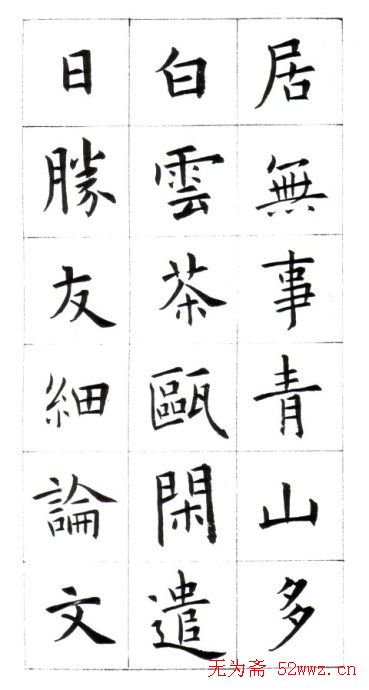 居無事青山多
白雲茶甌閑遣
日勝友細論文
无为斋 52wwz.cn